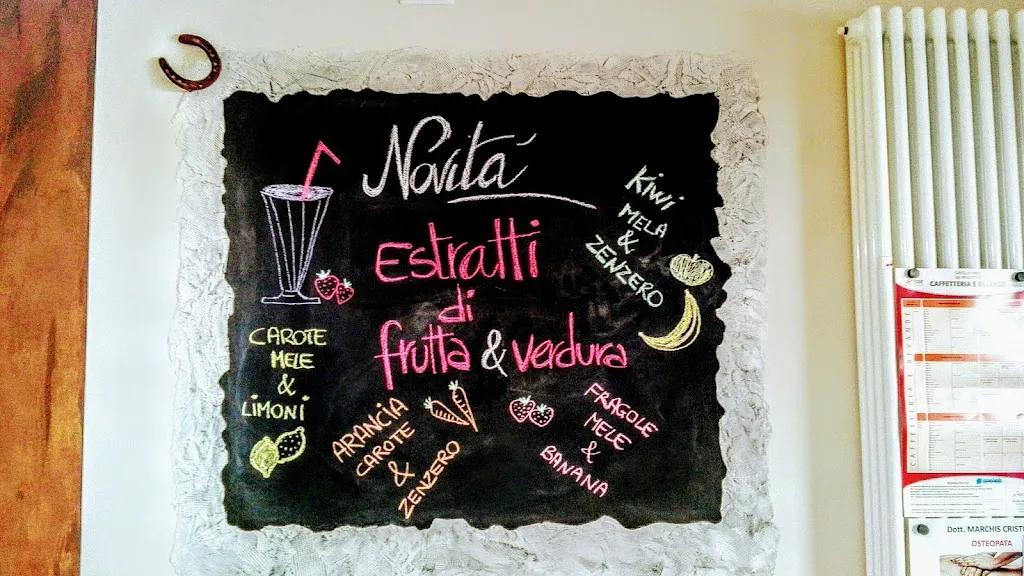 Novità
Estratti
di
frutta & verdura
Kiwi
MELA
&
ZENZERO
CAROTE
MELE
&
LIMONI
ARANCIA
CAROTE
&
ZENZERO
FRAGOLE
MELE
&
BANANA
CAFFETTERIA E
Dott. MARCHIS CRISTI
OSTEOPATA